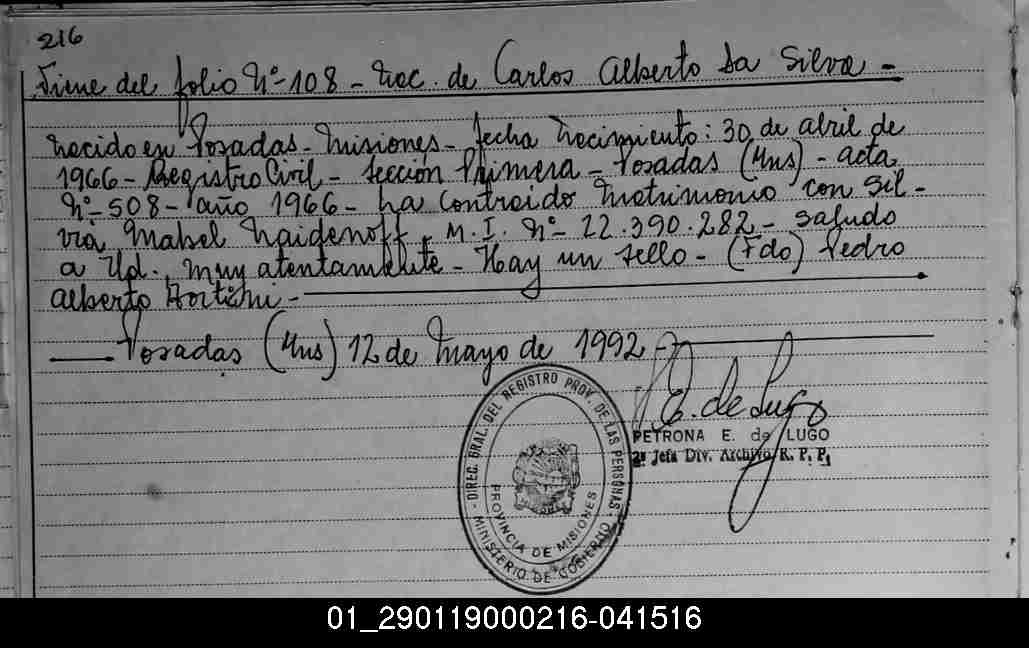 216
Viene del folio Nº-108- Nac. de Carlos Alberto Da Silva-
Nacido en Posadas- Misiones- fecha Nacimiento: 30 de abril de
1966- Registro Civil- Sección Primera- Posadas (Mns)- acta
Nº-508- año 1966- ha contraido Matrimonio con Sil-
via Mabel Naidenoff- M.I. Nº- 22.390.282- saludo
a Ud., muy atentamente- Hay un sello- (Fdo) Pedro
Alberto
Posadas (Mns) 12 de Mayo de 1992
E. de Lugo
PETRONA E. de LUGO
2ª Jefa Div. Archivo R. P. P.
- DIREC. GRAL. DEL REGISTRO PROV. DE LAS PERSONAS -
MINISTERIO DE GOBIERNO
PROVINCIA DE MISIONES
01_290119000216-041516